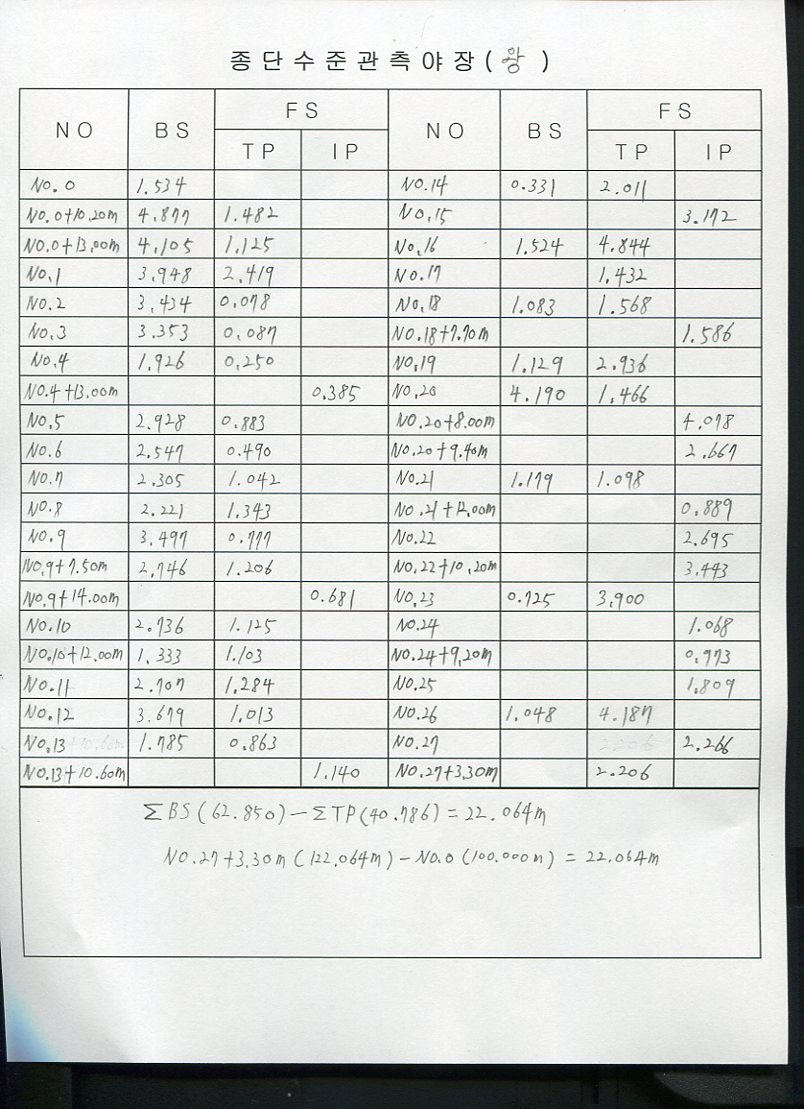 종단수준관측야장(왕)
NO BS FS NO BS FS
TP IP TP IP
NO.0 1.534 NO.14 0.331 2.011
NO.0+10.20m 4.877 1.482 NO.15 3.172
NO.0+13.00m 4.105 1.125 NO.16 1.524 4.844
NO.1 3.948 2.419 NO.17 1.432
NO.2 3.434 0.078 NO.18 1.083 1.568
NO.3 3.353 0.087 NO.18+7.70m 1.586
NO.4 1.926 0.250 NO.19 1.129 2.936
NO.4+13.00m 0.385 NO.20 4.190 1.466
NO.5 2.928 0.883 NO.20+8.00m 4.078
NO.6 2.547 0.490 NO.20+9.40m 2.667
NO.7 2.305 1.042 NO.21 1.179 1.098
NO.8 2.221 1.343 NO.21+12.00m 0.889
NO.9 3.497 0.777 NO.22 2.695
NO.9+7.50m 2.746 1.206 NO.22+10.20m 3.443
NO.9+14.00m 0.681 NO.23 0.725 3.900
NO.10 2.736 1.125 NO.24 1.068
NO.10+12.00m 1.333 1.103 NO.24+9.20m 0.973
NO.11 2.707 1.284 NO.25 1.809
NO.12 3.679 1.013 NO.26 1.048 4.187
NO.13 1.785 0.863 NO.27 2.266
NO.13+10.60m 1.140 NO.27+3.30m 2.206
ΣBS(62.850)-ΣTP(40.786)=22.064m
NO.27+3.30m(122.064m)-NO.0(100.000m)=22.064m